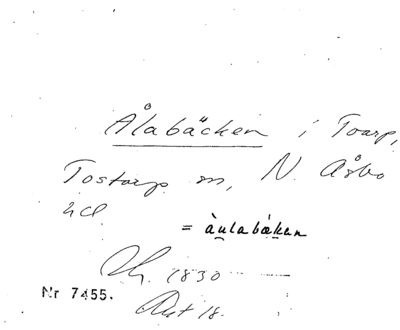 Ålabäcken i Toarp,
Tostarp sn, N. Åsbo
hd
= àulabákan
1830
Nr 7455.